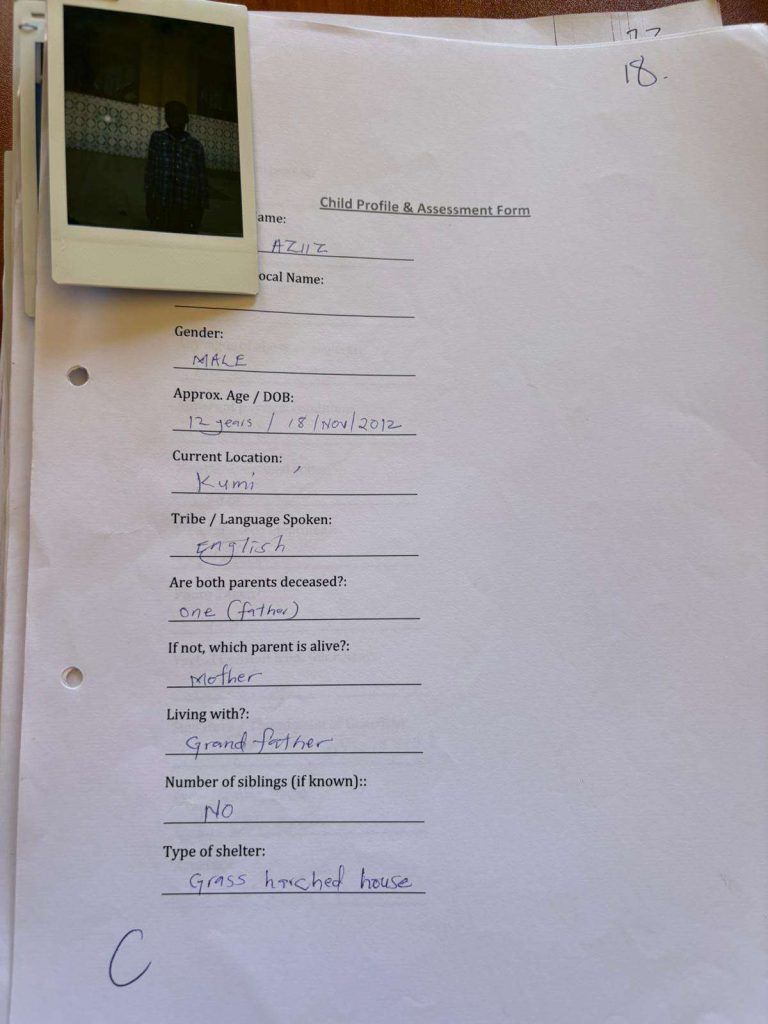 18.
Child Profile & Assessment Form
ame:
AZIIZ
ocal Name:
Gender:
MALE
Approx. Age / DOB:
12 years / 18/Nov/2012
Current Location:
Kumi
Tribe / Language Spoken:
English
Are both parents deceased?:
one (father)
If not, which parent is alive?:
Mother
Living with?:
Grand father
Number of siblings (if known)::
NO
Type of shelter:
Grass harched house
C